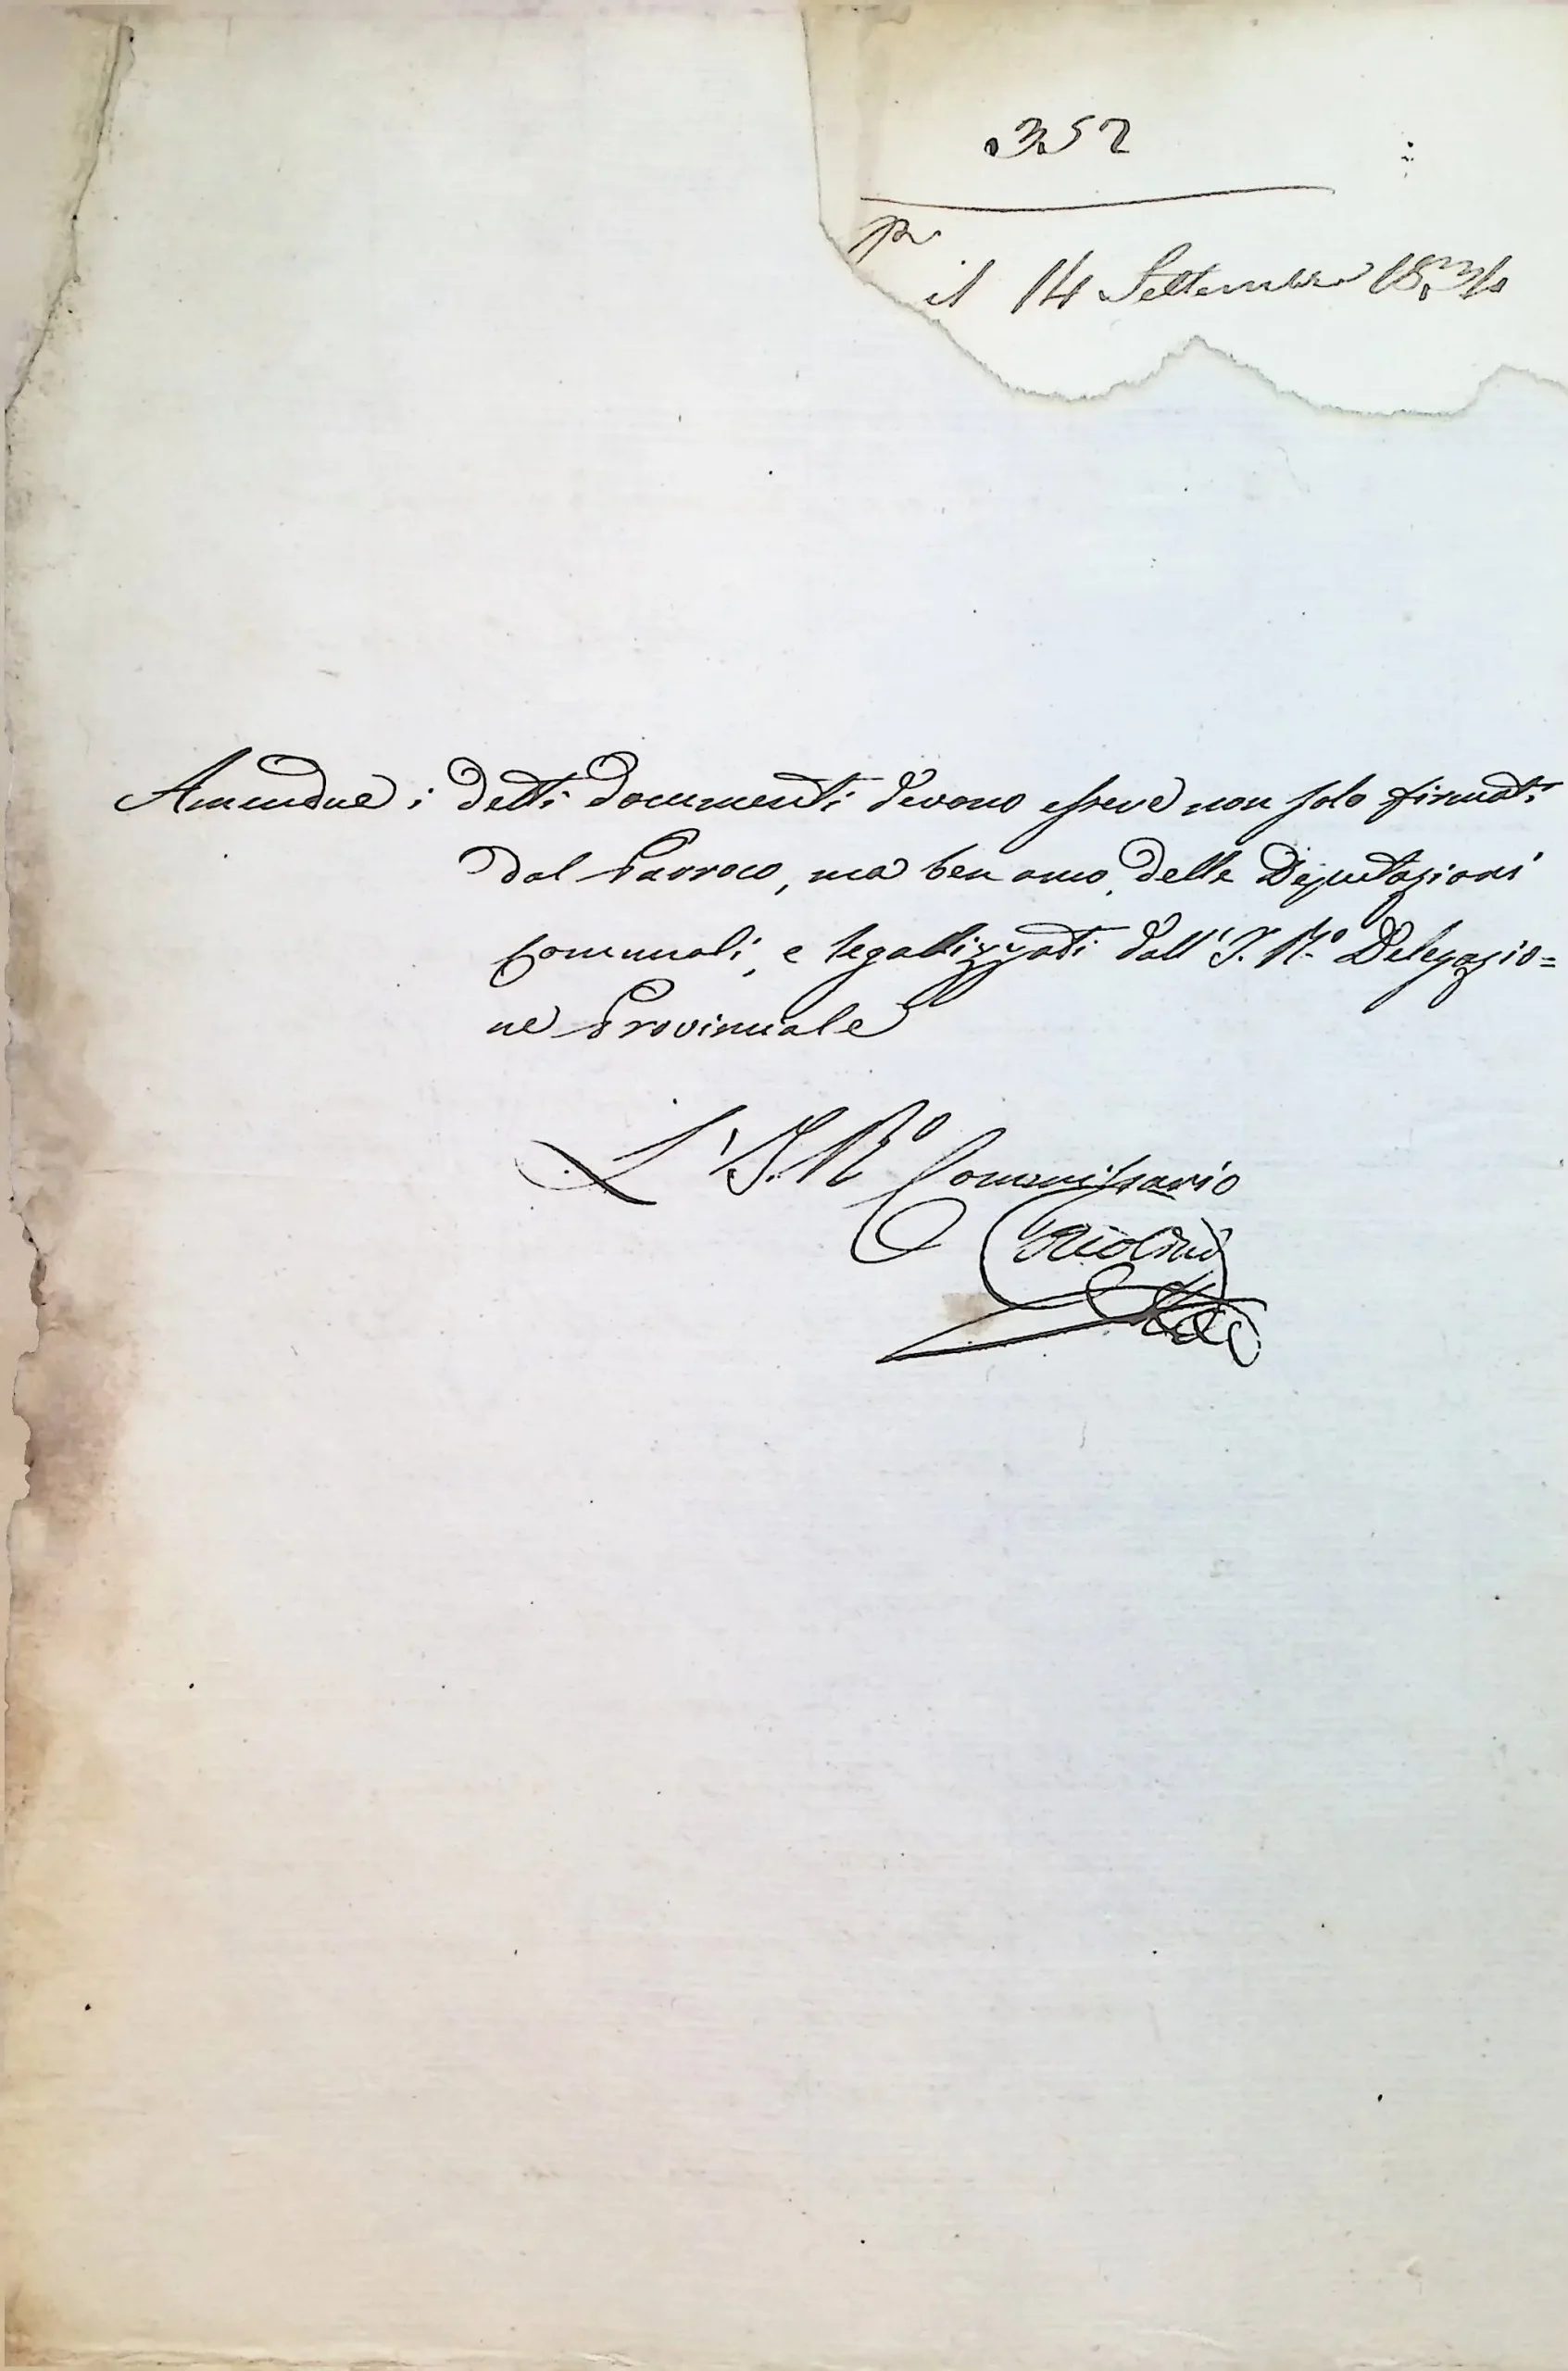 352
il 14 Settembre 1834
Amendue i detti documenti devono essere non solo firmati
dal Parroco, ma ben anco delle Deputazioni
Comunali, e legallizzati dall' I. R.º Delegazio=
ne Provinciale
L' I. R.º Commissario